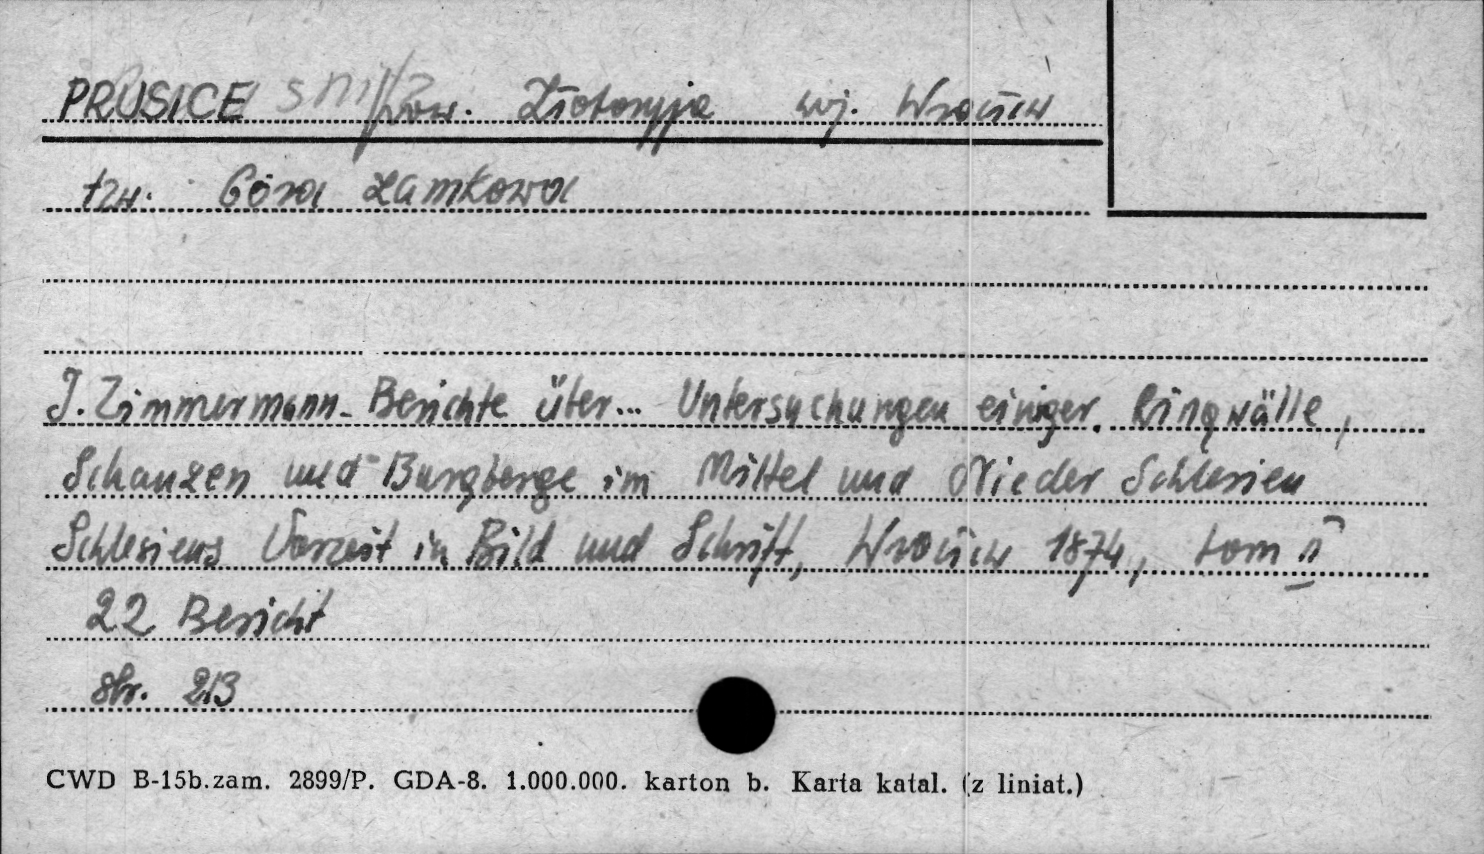 PRUSICE pow. Złotoryja woj. Wrocław
tzw. Góra Zamkowa
J. Zimmermann - Berichte über... Untersuchungen einiger Ringwälle,
Schanzen und Burgberge im Mittel und Nieder Schlesien
Schlesiens Vorzeit in Bild und Schrift, Wrocław 1874, tom II
22 Bericht
str. 213
CWD B-15b.zam. 2899/P. GDA-8. 1.000.000. karton b. Karta katal. (z liniat.)